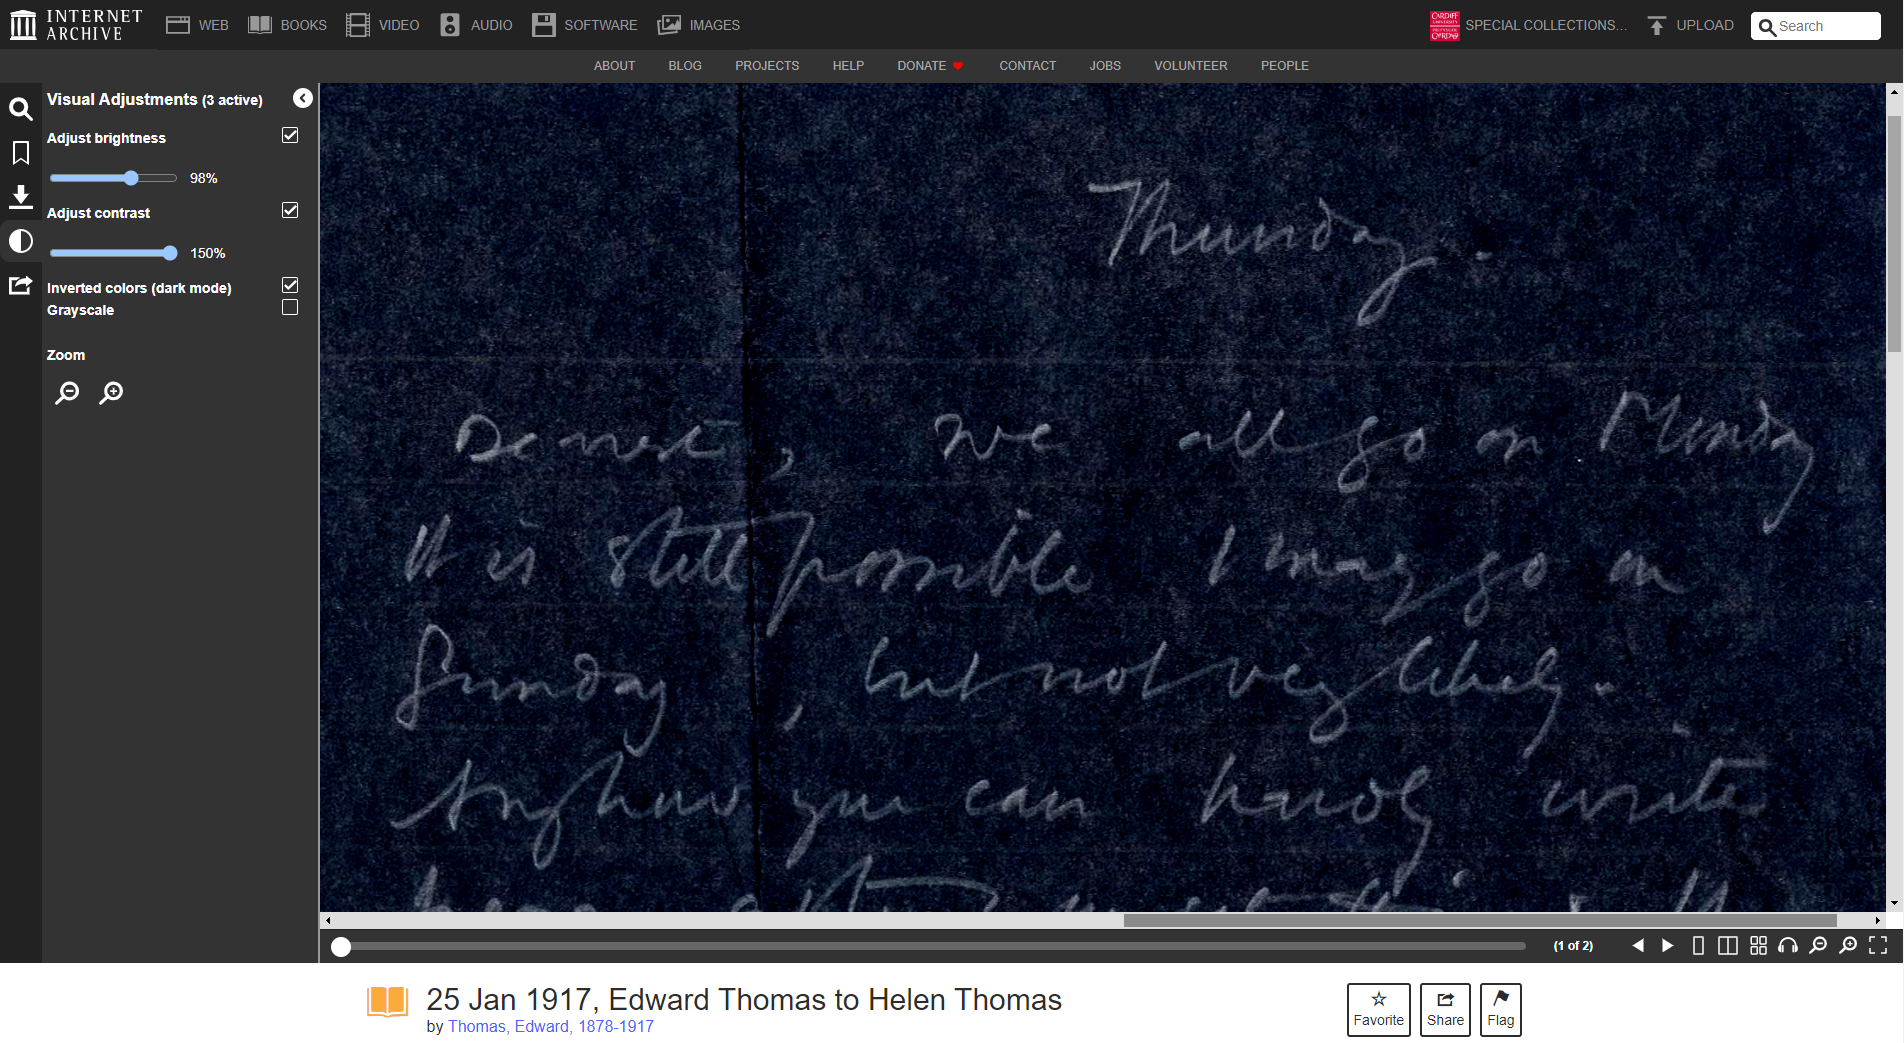 INTERNET ARCHIVE
WEB BOOKS VIDEO AUDIO SOFTWARE IMAGES
CARDIFF UNIVERSITY PRIFYSGOL CAERDYDD
SPECIAL COLLECTIONS... UPLOAD Search
ABOUT BLOG PROJECTS HELP DONATE CONTACT JOBS VOLUNTEER PEOPLE
Visual Adjustments (3 active)
Adjust brightness
98%
Adjust contrast
150%
Inverted colors (dark mode)
Grayscale
Zoom
Thursday.
Dearest, We all go on Monday
It is still possible I may go on
Sunday, but not very likely.
Anyhow you can hardly write
here after
(1 of 2)
25 Jan 1917, Edward Thomas to Helen Thomas
by Thomas, Edward, 1878-1917
Favorite Share Flag